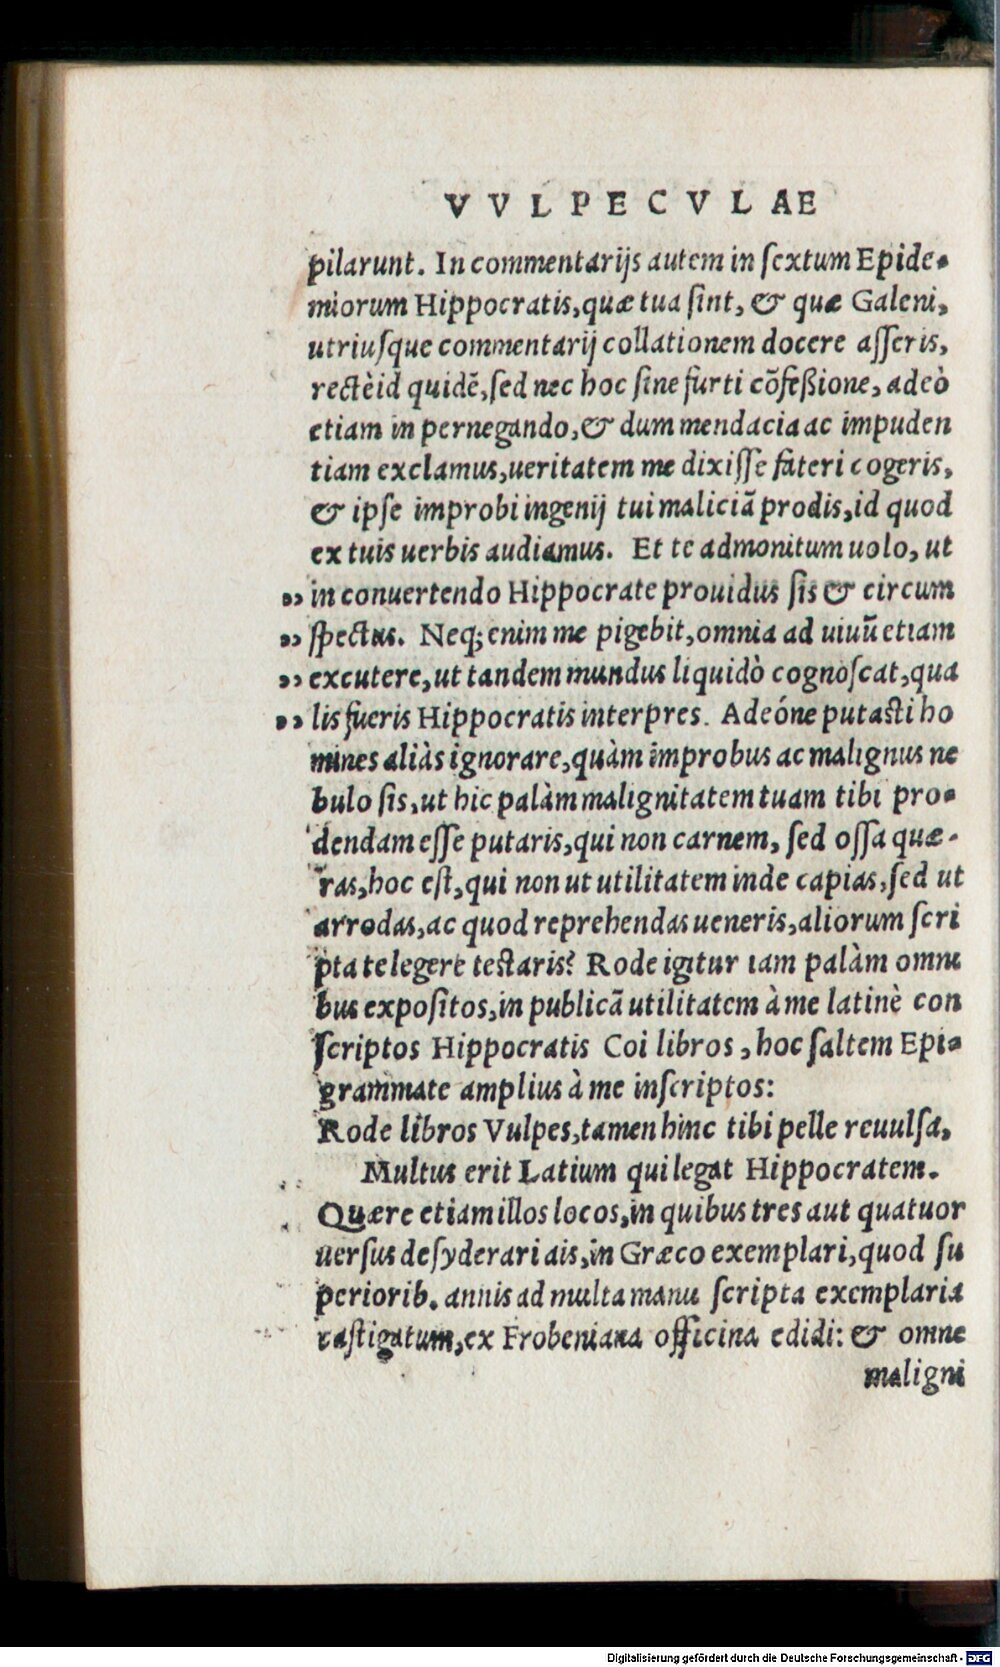 VVLPECVLAE
pilarunt. In commentarijs autem in ſextum Epide⸗
miorum Hippocratis, quæ tua ſint, & quæ Galeni,
utriuſque commentarij collationem docere aſſeris,
rectè id quidẽ, ſed nec hoc ſine furti cõfeßione, adeò
etiam in pernegando, & dum mendacia ac impuden
tiam exclamus, ueritatem me dixiſſe fateri cogeris,
& ipſe improbi ingenij tui maliciã prodis, id quod
ex tuis uerbis audiamus. Et te admonitum uolo, ut
„ in conuertendo Hippocrate prouidus ſis & circum
„ ſpectus. Neq; enim me pigebit, omnia ad uiuũ etiam
„ excutere, ut tandem mundus liquidò cognoſcat, qua
„ lis fueris Hippocratis interpres. Adeóne putaſti ho
mines aliàs ignorare, quàm improbus ac malignus ne
bulo ſis, ut hic palàm malignitatem tuam tibi pro⸗
dendam eſſe putaris, qui non carnem, ſed oſſa quæ⸗
ras, hoc eſt, qui non ut utilitatem inde capias, ſed ut
arrodas, ac quod reprehendas ueneris, aliorum ſcri
pta te legere teſtaris? Rode igitur iam palàm omni
bus expoſitos, in publicã utilitatem à me latinè con
ſcriptos Hippocratis Coi libros, hoc ſaltem Epi⸗
grammate amplius à me inſcriptos:
Rode libros Vulpes, tamen hinc tibi pelle reuulſa,
Multus erit Latium qui legat Hippocratem.
Quære etiam illos locos, in quibus tres aut quatuor
uerſus deſyderari ais, in Græco exemplari, quod ſu
periorib. annis ad multa manu ſcripta exemplaria
caſtigatum, ex Frobeniana officina edidi: & omne
maligni
Digitalisierung gefördert durch die Deutsche Forschungsgemeinschaft - DFG